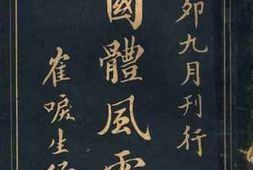 卯九月刊行
國體風雲
崔唳生編